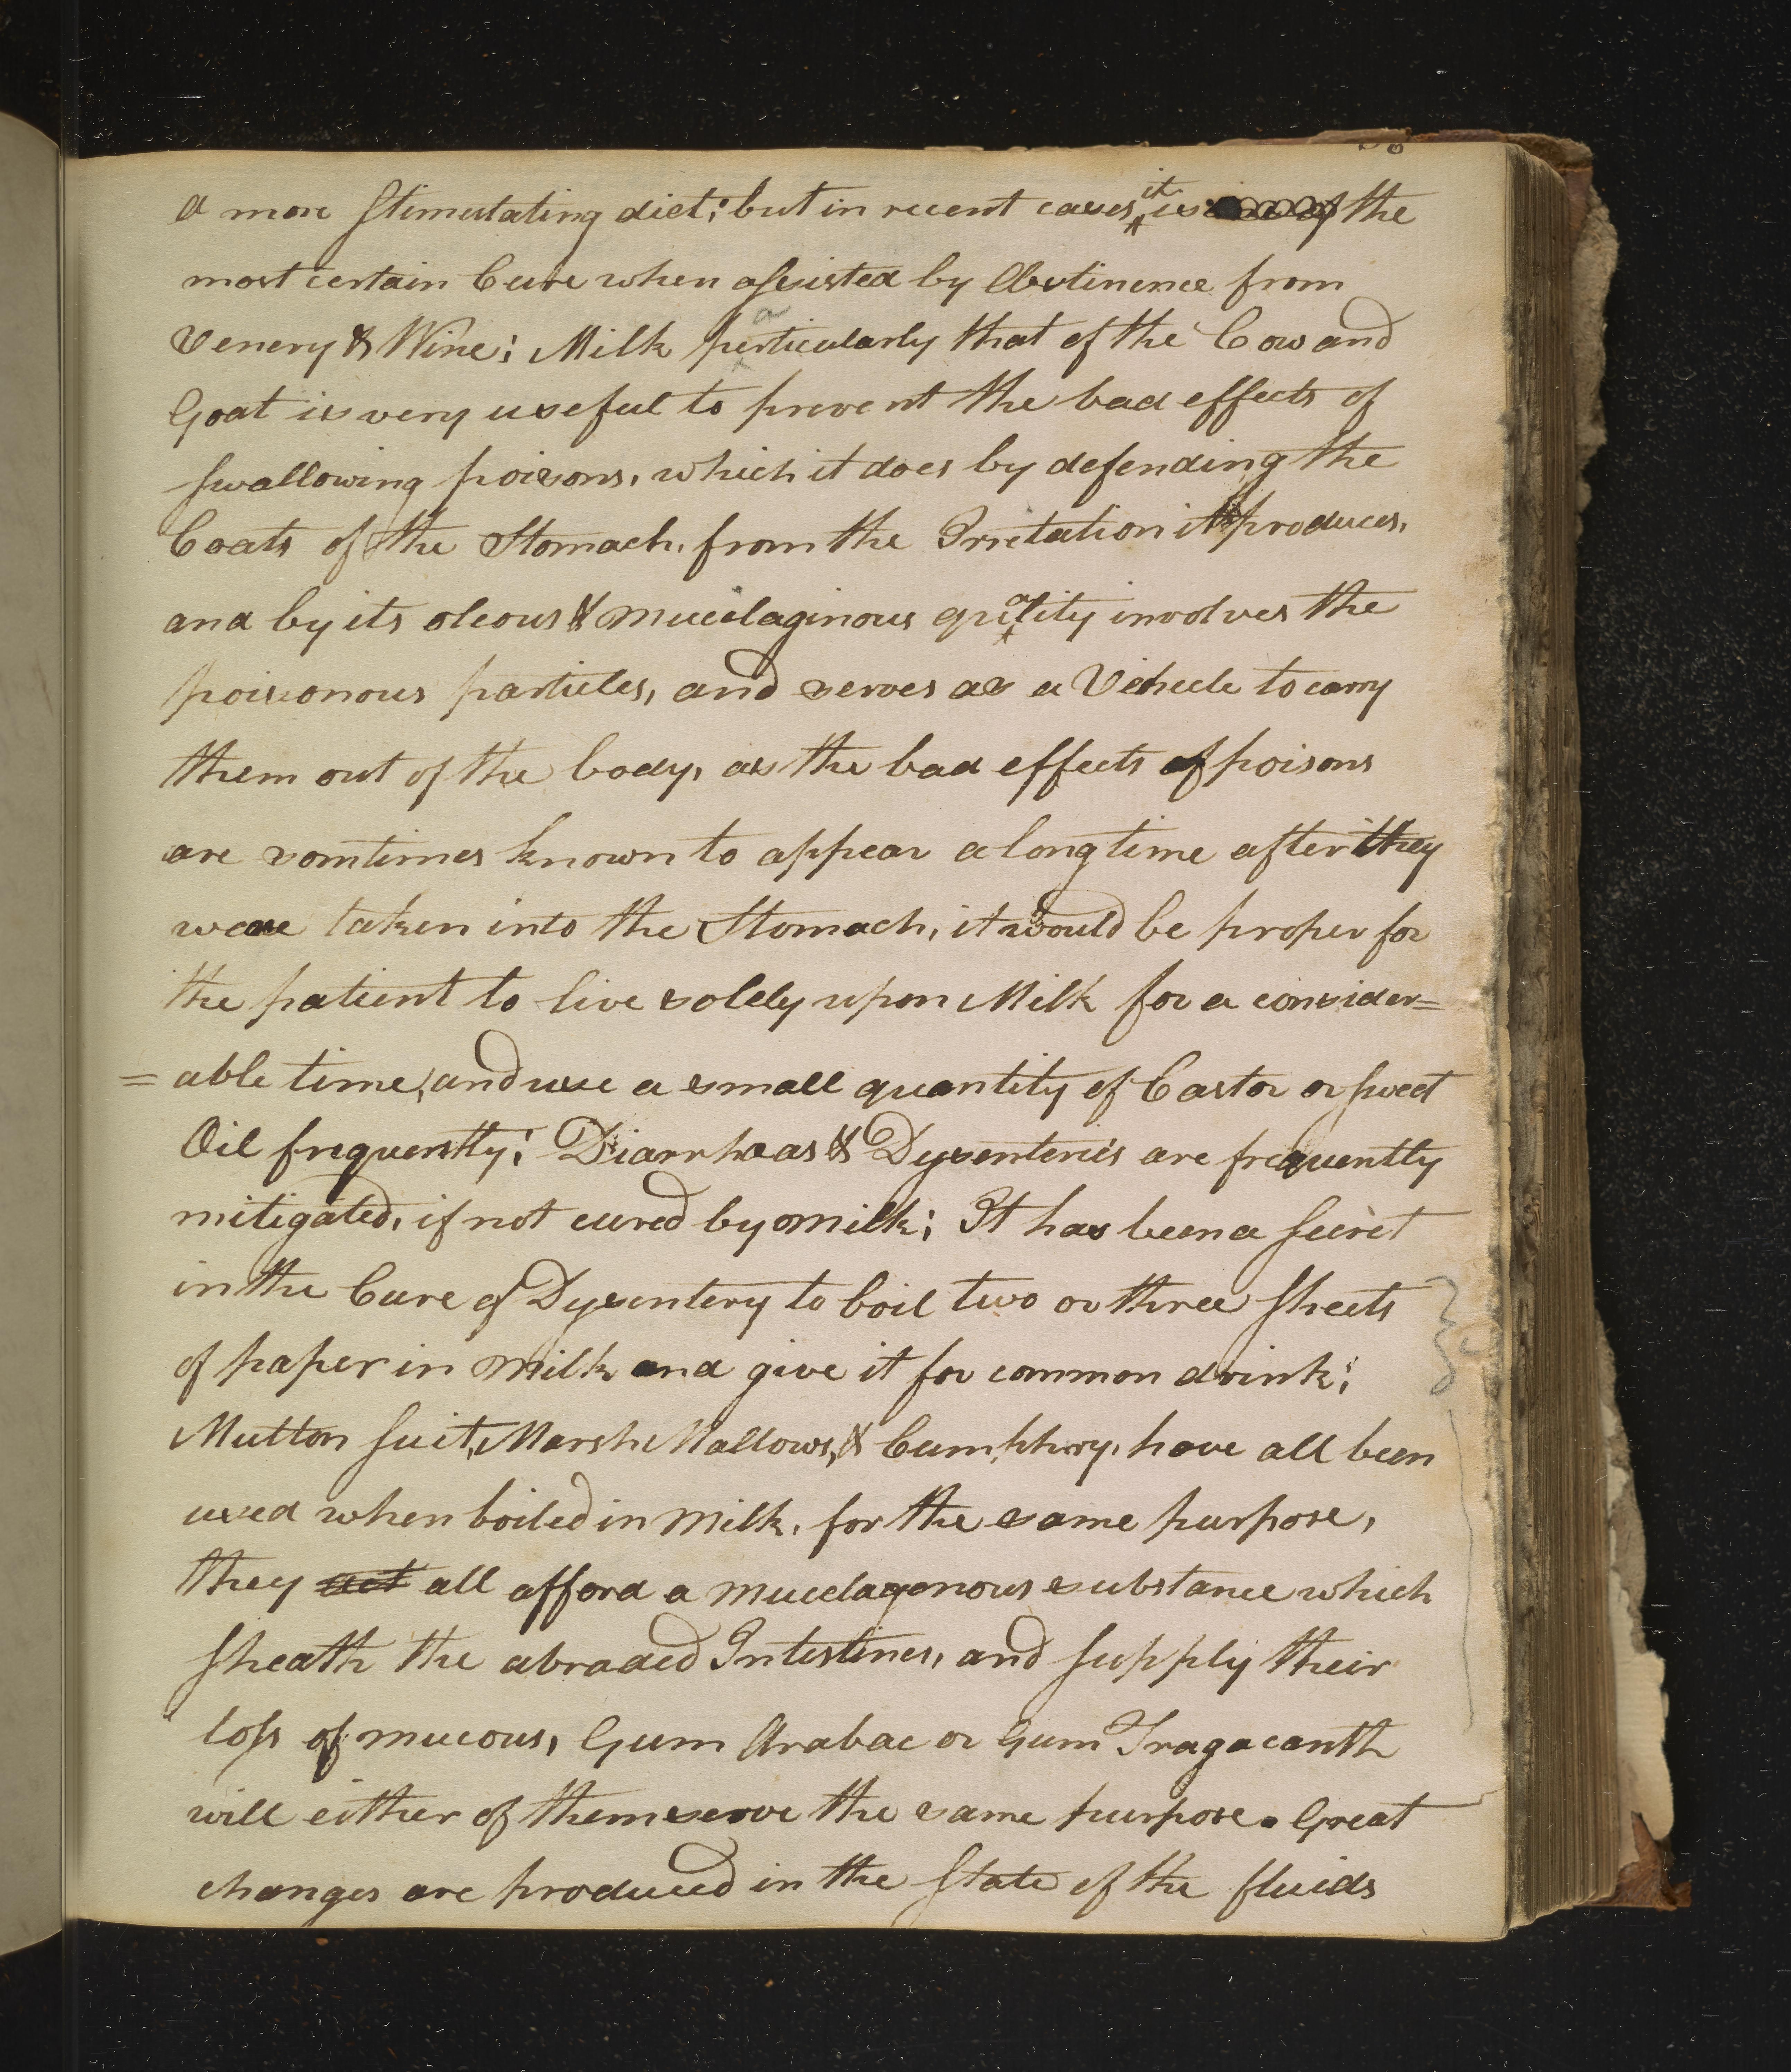 a more stimulating diet; but in recent cases it is the
most certain Cure when assisted by Abstinence from
Venery & Wine; Milk particularly that of the Cow and
Goat is very useful to prevent the bad effects of
swallowing poisons, which it does by defending the
Coats of the Stomach, from the Irritation it produces,
and by its oleous & mucilaginous quality involves the
poisonous particles, and serves as a Vehicle to carry
them out of the body, as the bad effects of poisons
are somtimes known to appear a long time after they
weare taken into the Stomach, it would be proper for
the patient to live solely upon Milk for a consider=
=able time, and use a small quantity of Castor or sweet
Oil frequently; Diarrhœas & Dysenteries are frequently
mitigated, if not cured by milk; It has been a secret
in the Cure of Dysentery to boil two or three sheets
of paper in Milk and give it for common drink;
Mutton suit, Marsh Mallows, & Cumphry, have all been
used when boiled in Milk, for the same purpose,
they act all afford a mucelagonous substance which
sheath the abraded Intestines, and supply their
loss of mucous, Gum Arabac or Gum Tragacanth
will either of them serve the same purpose. Great
changes are produced in the state of the fluids